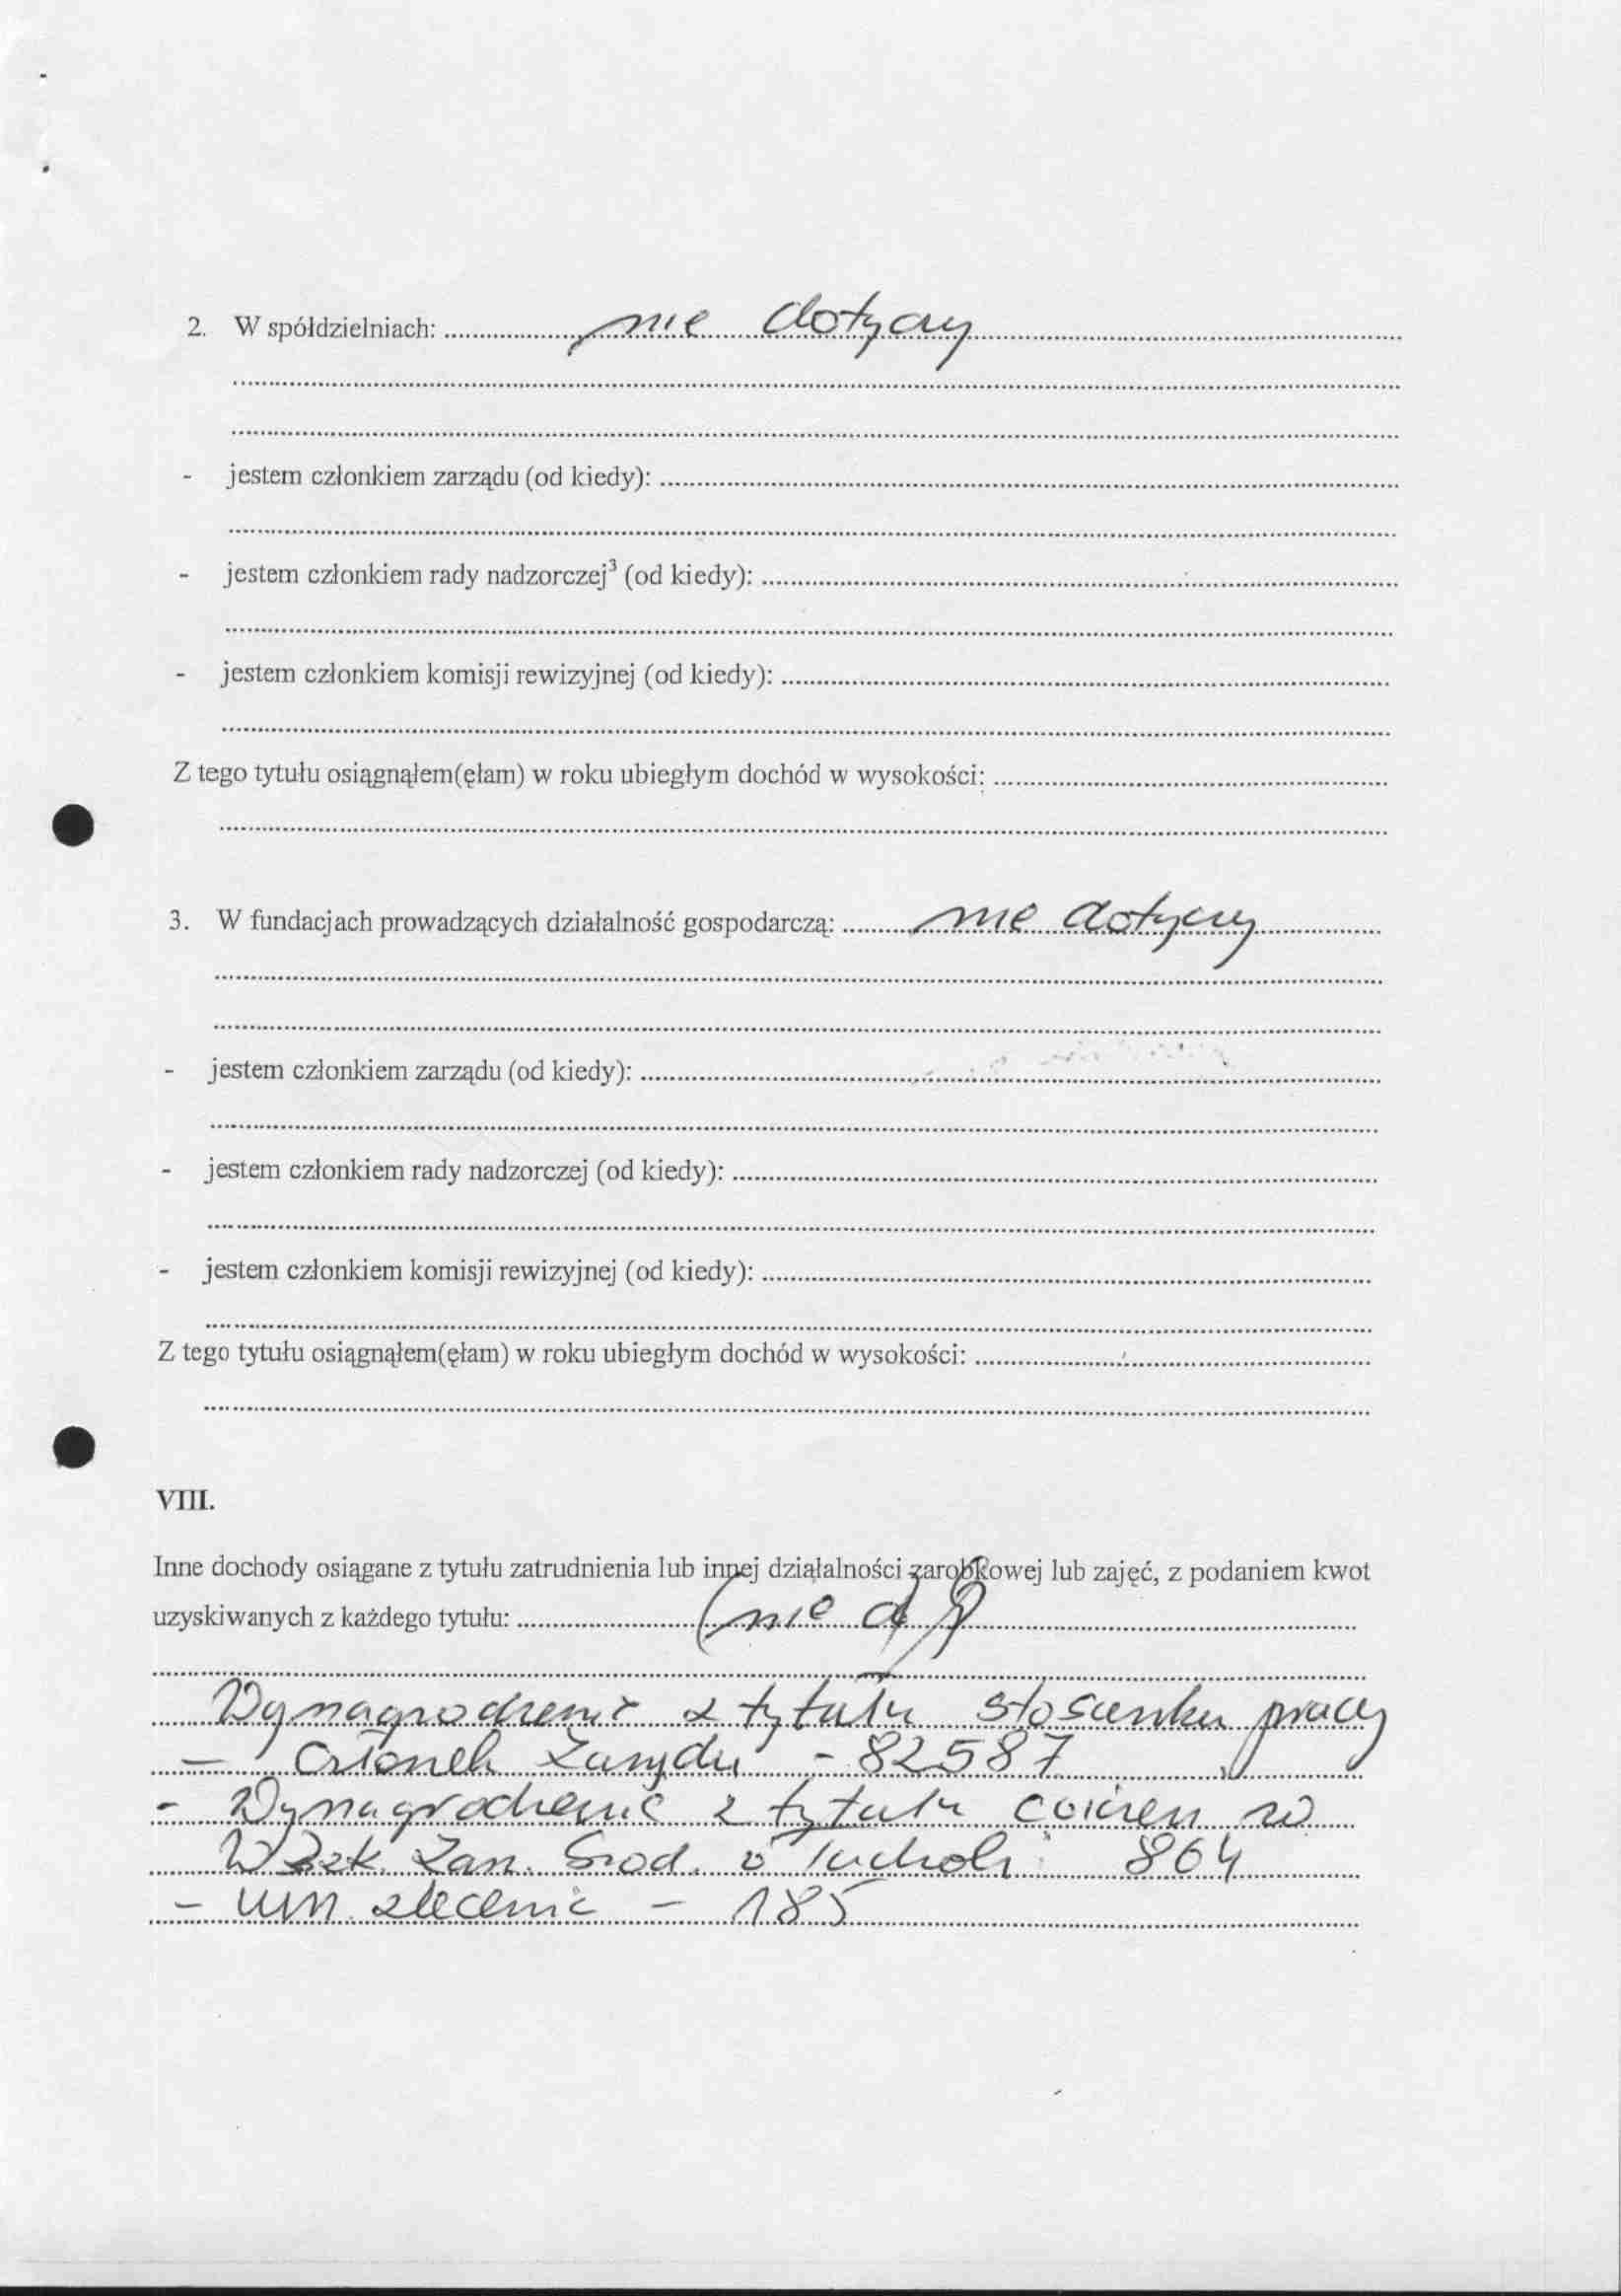 2. W spółdzielniach: nie dotyczy
- jestem członkiem zarządu (od kiedy):
- jestem członkiem rady nadzorczej³ (od kiedy):
- jestem członkiem komisji rewizyjnej (od kiedy):
Z tego tytułu osiągnąłem(ęłam) w roku ubiegłym dochód w wysokości:
3. W fundacjach prowadzących działalność gospodarczą: nie dotyczy
- jestem członkiem zarządu (od kiedy):
- jestem członkiem rady nadzorczej (od kiedy):
- jestem członkiem komisji rewizyjnej (od kiedy):
Z tego tytułu osiągnąłem(ęłam) w roku ubiegłym dochód w wysokości:
VIII.
Inne dochody osiągane z tytułu zatrudnienia lub innej działalności zarobkowej lub zajęć, z podaniem kwot
uzyskiwanych z każdego tytułu: (nie d
Wynagrodzenie z tytułu stosunku pracy
- Członek Zarządu - 82587
- Wynagrodzenie z tytułu ćwiczeń w
Zan. Środ. Tucholi 864
- um. zlecenie - 185